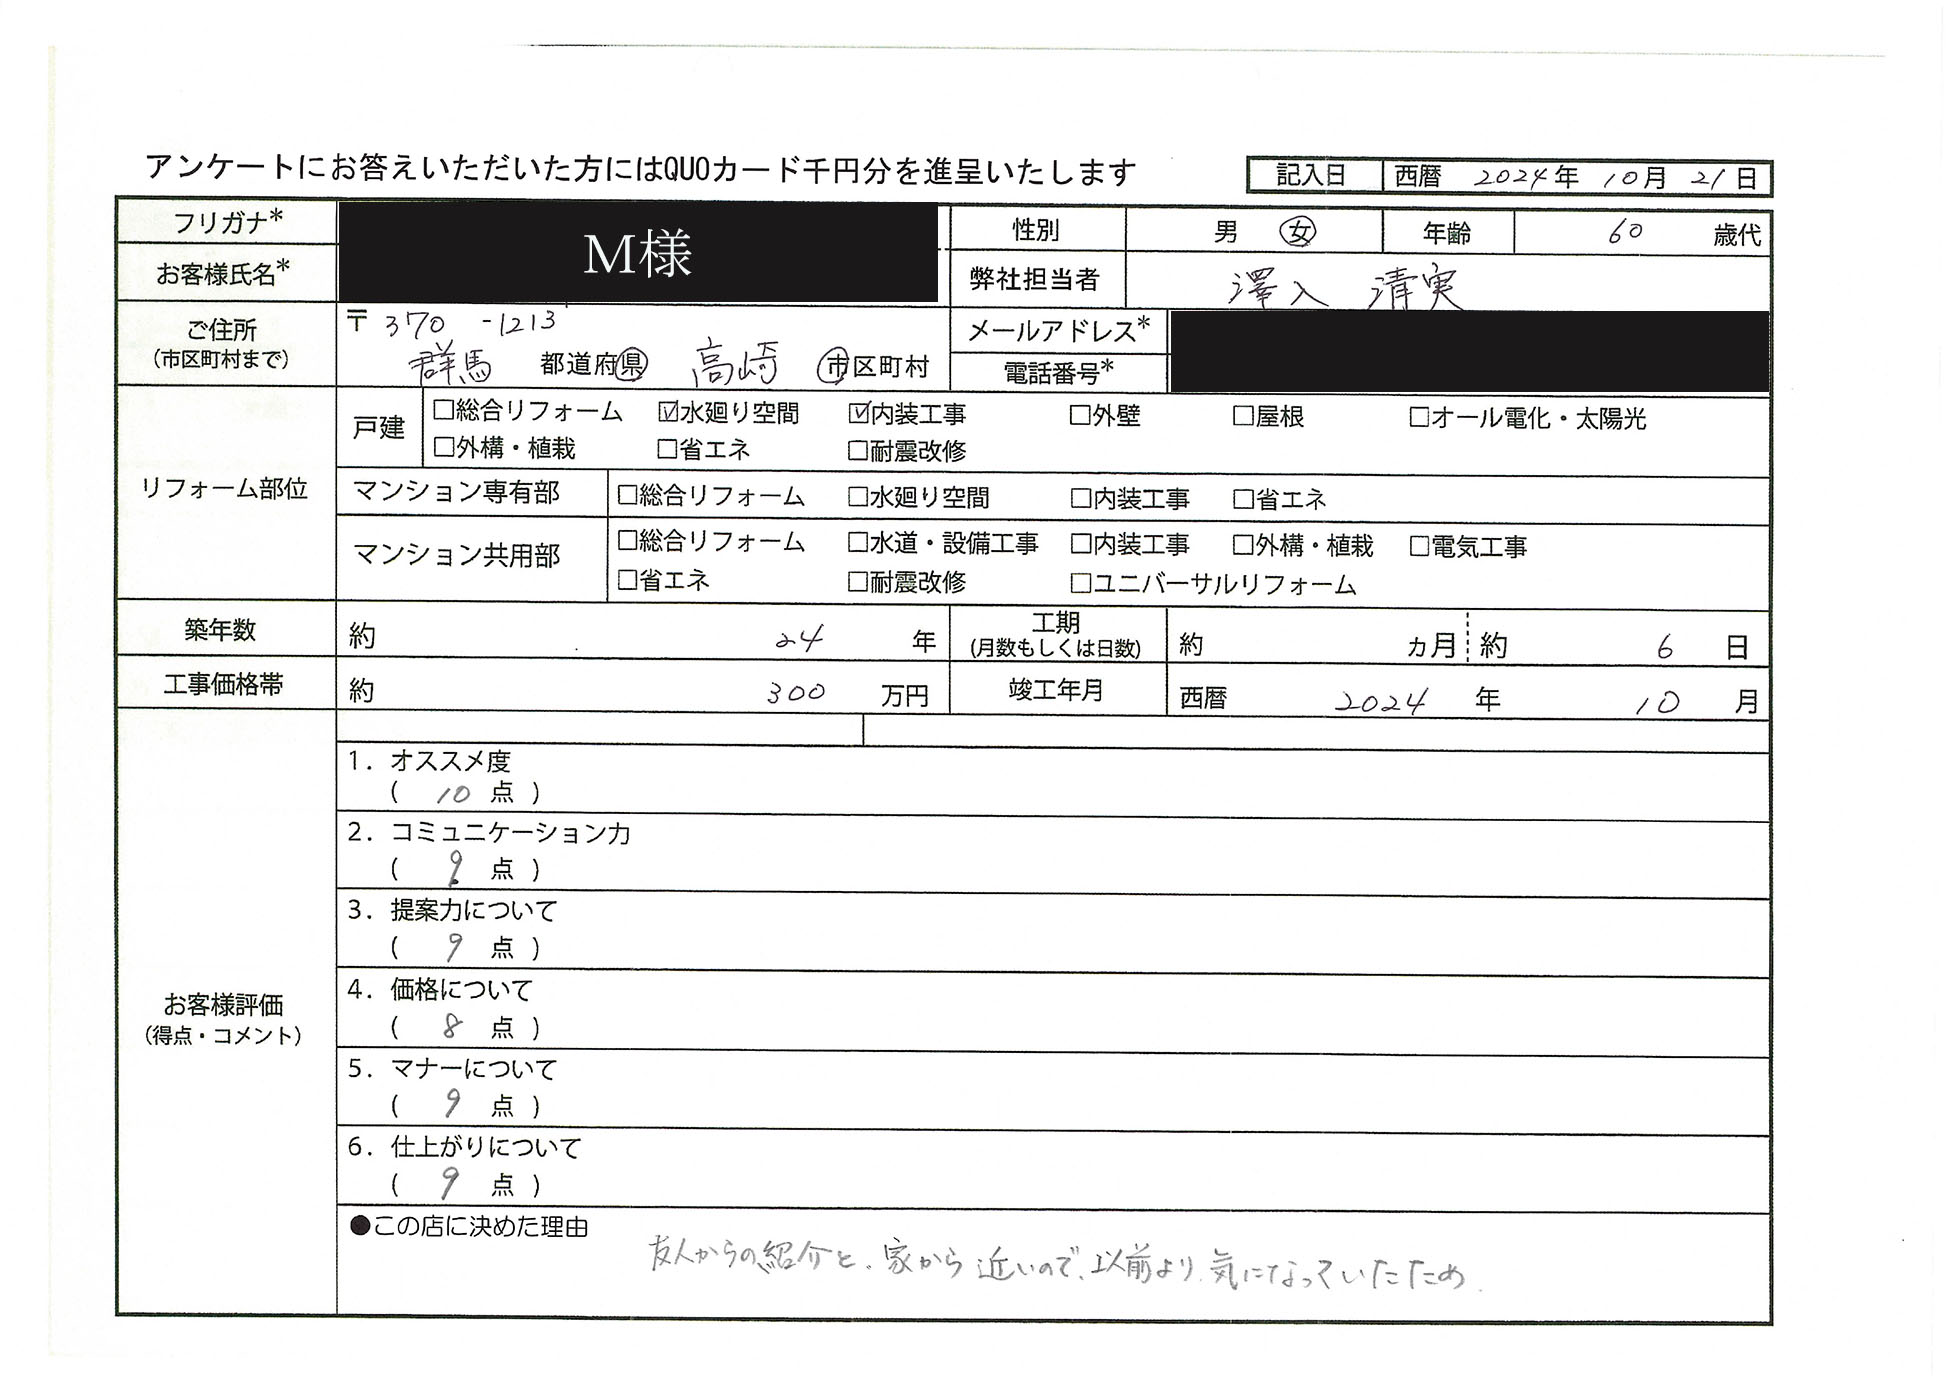 アンケートにお答えいただいた方にはQUOカード千円分を進呈いたします
記入日 西暦 2024年 10月 21日
フリガナ*
お客様氏名*
M様
性別 男 女 年齢 60 歳代
弊社担当者 澤入 清実
ご住所
(市区町村まで)
〒370-1213
群馬 都道府県 高崎 市区町村
メールアドレス*
電話番号*
リフォーム部位
戸建
□総合リフォーム ☑水廻り空間 ☑内装工事 □外壁 □屋根 □オール電化・太陽光
□外構・植栽 □省エネ □耐震改修
マンション専有部 □総合リフォーム □水廻り空間 □内装工事 □省エネ
マンション共用部
□総合リフォーム □水道・設備工事 □内装工事 □外構・植栽 □電気工事
□省エネ □耐震改修 □ユニバーサルリフォーム
築年数 約 24 年
工期
(月数もしくは日数)
約 カ月 約 6 日
工事価格帯 約 300 万円
竣工年月 西暦 2024 年 10 月
お客様評価
(得点・コメント)
1. オススメ度
( 10 点 )
2. コミュニケーション力
( 9 点 )
3. 提案力について
( 9 点 )
4. 価格について
( 8 点 )
5. マナーについて
( 9 点 )
6. 仕上がりについて
( 9 点 )
●この店に決めた理由
友人からの紹介と、家から近いので、以前より気になっていたため